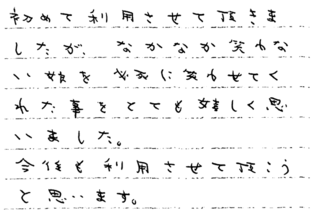 初めて利用させて頂きま
したが、なかなか笑わな
い娘を必死に笑わせてく
れた事をとても嬉しく思
いました。
今後も利用させて頂こう
と思います。